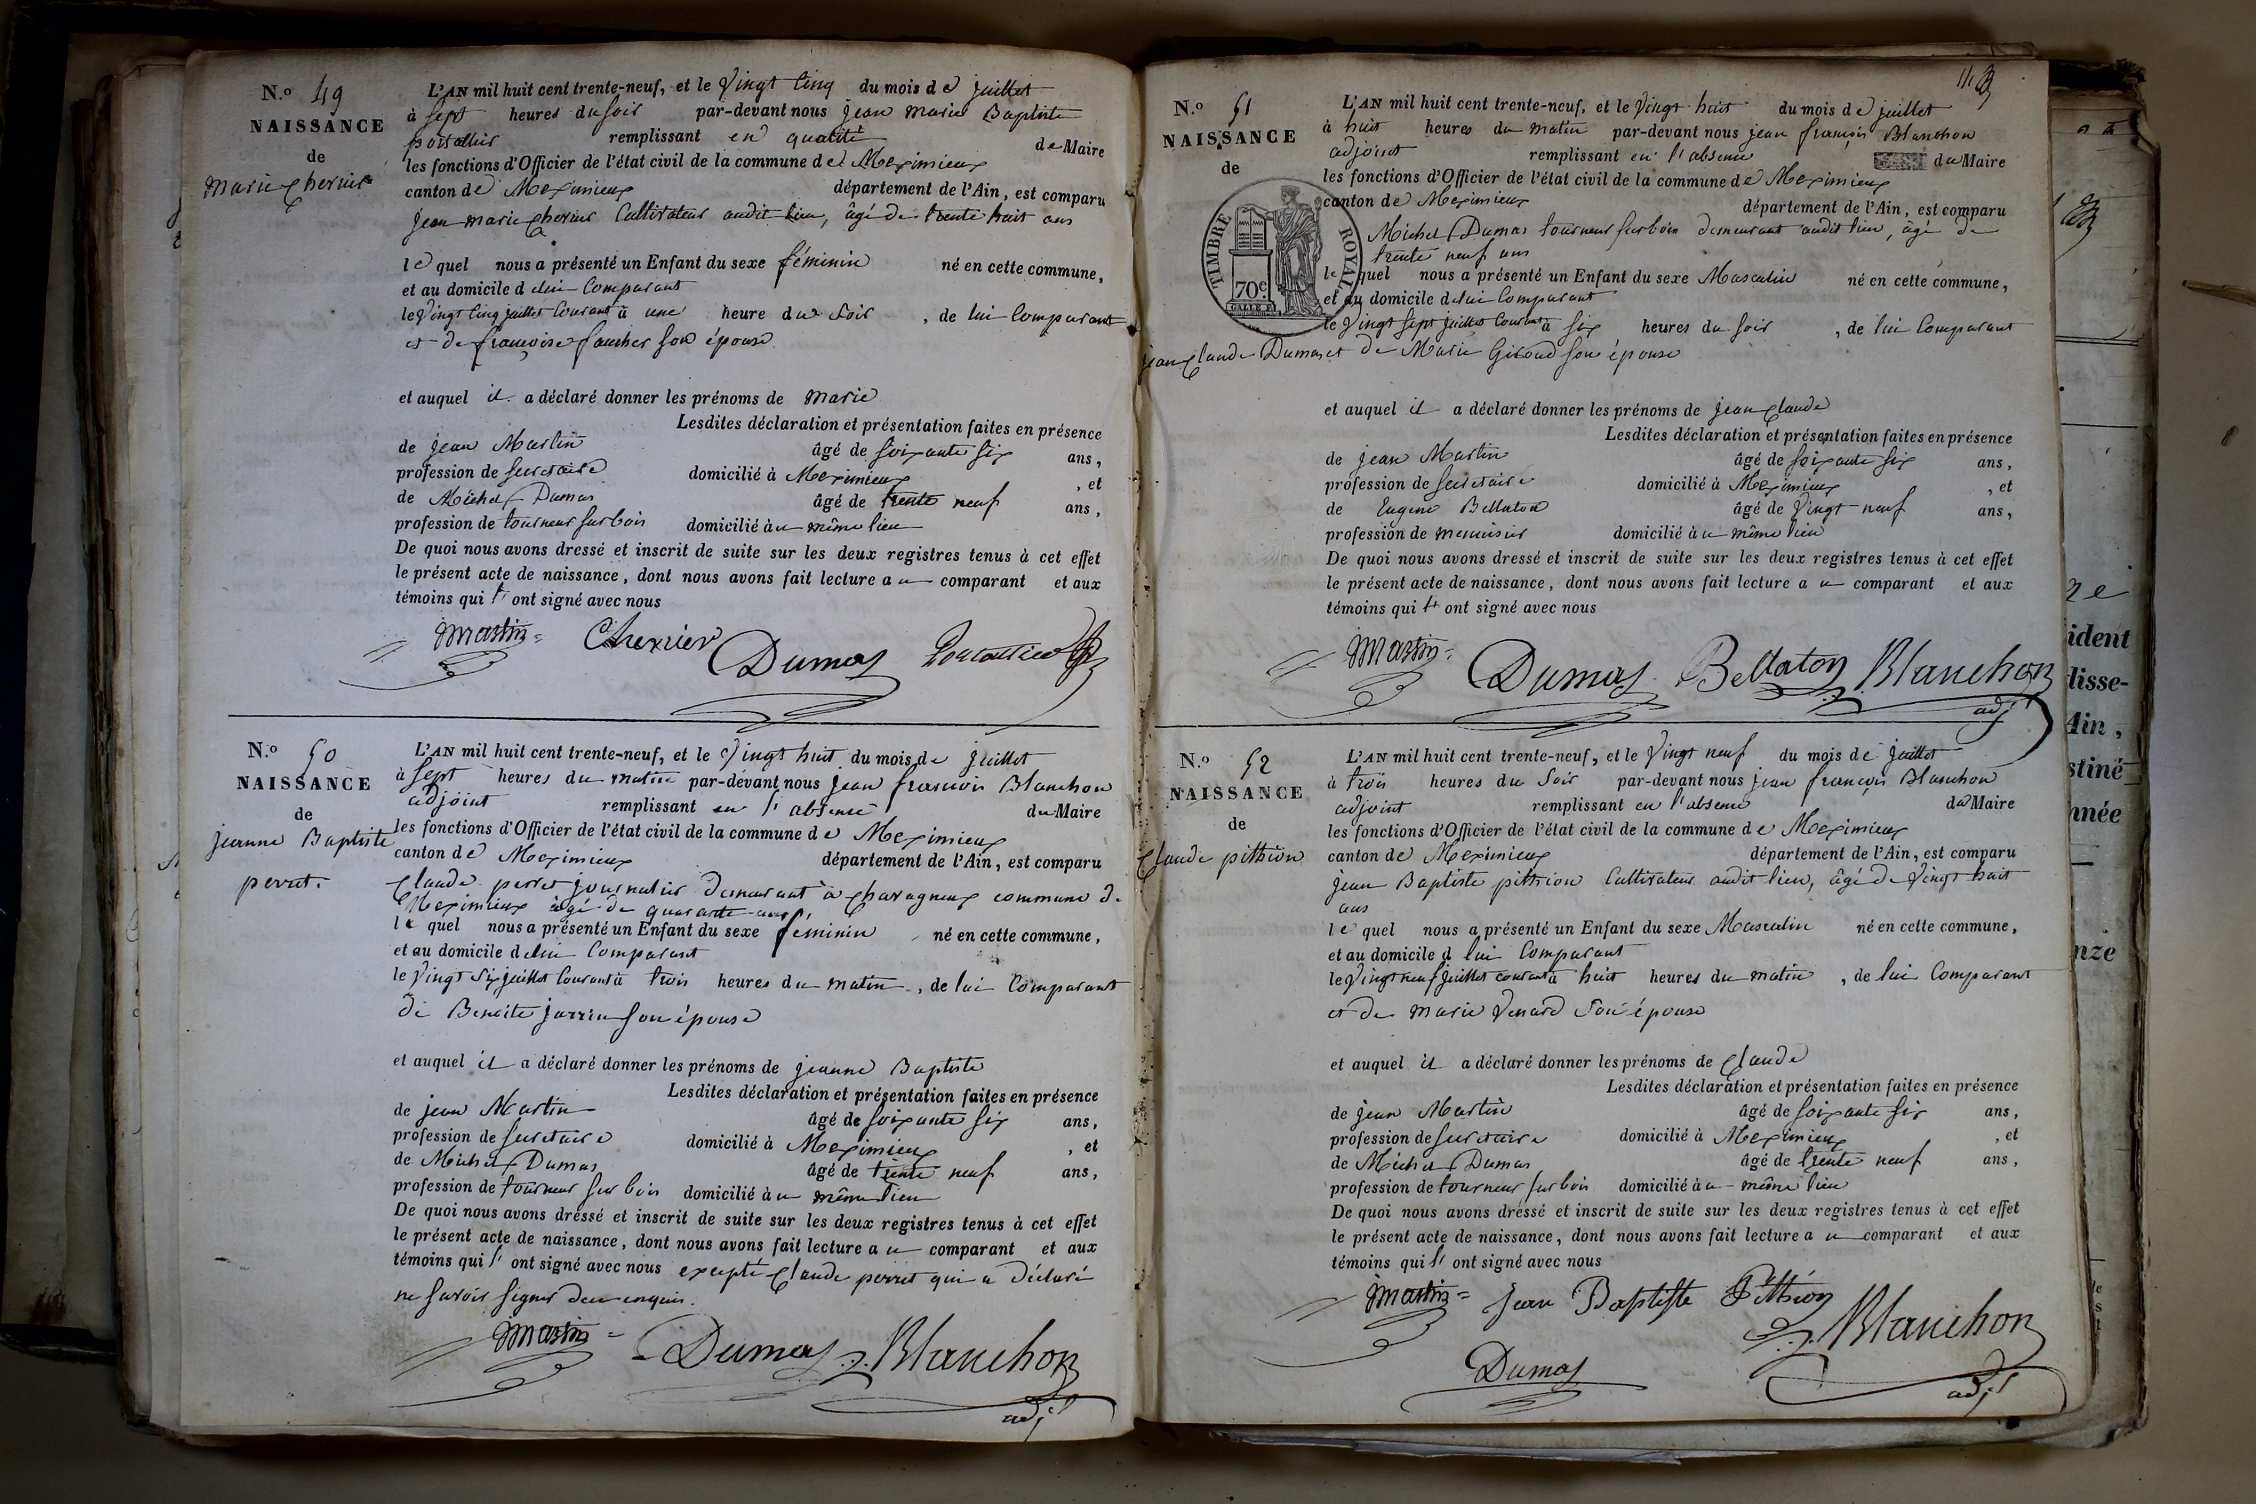 N.o 49
NAISSANCE
de
Marie Cherier
L'AN mil huit cent trente-neuf, et le Vingt Cinq du mois de juillet
à Sept heures du soir par-devant nous jean Marie Baptiste
portallier remplissant en qualité de Maire
les fonctions d'Officier de l'état civil de la commune de Meximieux
canton de Meximieux département de l'Ain, est comparu
jean Marie Cherier Cultivateur audit lieu, âgé de trente huit ans
le quel nous a présenté un Enfant du sexe féminin né en cette commune,
et au domicile de lui Comparant
le Vingt Cinq juillet Courant à une heure du Soir, de lui Comparant
et de françoise faucher son épouse
et auquel il a déclaré donner les prénoms de Marie
Lesdites déclaration et présentation faites en présence
de jean Martin âgé de soixante six ans,
profession de secretaire domicilié à Meximieux, et
de Michel Dumas âgé de trente neuf ans,
profession de tourneur sur bois domicilié au même lieu
De quoi nous avons dressé et inscrit de suite sur les deux registres tenus à cet effet
le présent acte de naissance, dont nous avons fait lecture au comparant et aux
témoins qui l' ont signé avec nous
Martin Cherier Dumas
N.o 50
NAISSANCE
de
jeanne Baptiste
perret.
L'AN mil huit cent trente-neuf, et le Vingt huit du mois de juillet
à Sept heures du matin par-devant nous jean françois Blanchon
adjoint remplissant en l'absence du Maire
les fonctions d'Officier de l'état civil de la commune de Meximieux
canton de Meximieux département de l'Ain, est comparu
Claude perret journalier demeurant à Charagneux commune de
Meximieux âgé de quarante ans
le quel nous a présenté un Enfant du sexe féminin né en cette commune,
et au domicile de lui Comparant
le Vingt Six juillet Courant à trois heures du matin, de lui Comparant
de Benoite jarrin son épouse
et auquel il a déclaré donner les prénoms de jeanne Baptiste
Lesdites déclaration et présentation faites en présence
de jean Martin âgé de soixante six ans,
profession de secretaire domicilié à Meximieux, et
de Michel Dumas âgé de trente neuf ans,
profession de tourneur sur bois domicilié au même lieu
De quoi nous avons dressé et inscrit de suite sur les deux registres tenus à cet effet
le présent acte de naissance, dont nous avons fait lecture au comparant et aux
témoins qui l' ont signé avec nous excepté Claude perret qui a déclaré
ne savoir signer de ce enquis.
Martin Dumas Blanchon
adjt
113
N.o 51
NAISSANCE
de
TIMBRE ROYAL
70c
jean Claude Dumas
L'AN mil huit cent trente-neuf, et le Vingt huit du mois de juillet
à huit heures du matin par-devant nous jean françois Blanchon
adjoint remplissant en l'absence du Maire
les fonctions d'Officier de l'état civil de la commune de Meximieux
canton de Meximieux département de l'Ain, est comparu
Michel Dumas tourneur sur bois demeurant audit lieu, âgé de
trente neuf ans
le quel nous a présenté un Enfant du sexe Masculin né en cette commune,
et au domicile de lui Comparant
le Vingt Sept juillet Courant à six heures du soir, de lui Comparant
et de Marie Giroud son épouse
et auquel il a déclaré donner les prénoms de jean Claude
Lesdites déclaration et présentation faites en présence
de jean Martin âgé de soixante six ans,
profession de secretaire domicilié à Meximieux, et
de Eugene Bellaton âgé de Vingt neuf ans,
profession de menuisier domicilié au même lieu
De quoi nous avons dressé et inscrit de suite sur les deux registres tenus à cet effet
le présent acte de naissance, dont nous avons fait lecture au comparant et aux
témoins qui l' ont signé avec nous
Martin Dumas Bellaton Blanchon
adjt
N.o 52
NAISSANCE
de
Claude pithion
L'AN mil huit cent trente-neuf, et le Vingt neuf du mois de juillet
à trois heures du Soir par-devant nous jean françois Blanchon
adjoint remplissant en l'absence du Maire
les fonctions d'Officier de l'état civil de la commune de Meximieux
canton de Meximieux département de l'Ain, est comparu
jean Baptiste pithion Cultivateur audit lieu, âgé de Vingt huit
ans
le quel nous a présenté un Enfant du sexe Masculin né en cette commune,
et au domicile de lui Comparant
le Vingt neuf juillet courant à huit heures du matin, de lui Comparant
et de Marie Venard Son épouse
et auquel il a déclaré donner les prénoms de Claude
Lesdites déclaration et présentation faites en présence
de jean Martin âgé de soixante six ans,
profession de secretaire domicilié à Meximieux, et
de Michel Dumas âgé de trente neuf ans,
profession de tourneur sur bois domicilié au même lieu
De quoi nous avons dressé et inscrit de suite sur les deux registres tenus à cet effet
le présent acte de naissance, dont nous avons fait lecture au comparant et aux
témoins qui l' ont signé avec nous
Martin Jean Baptiste Pithion Blanchon
Dumas adjt
ident
lisse-
Ain,
stiné
nnée
nze